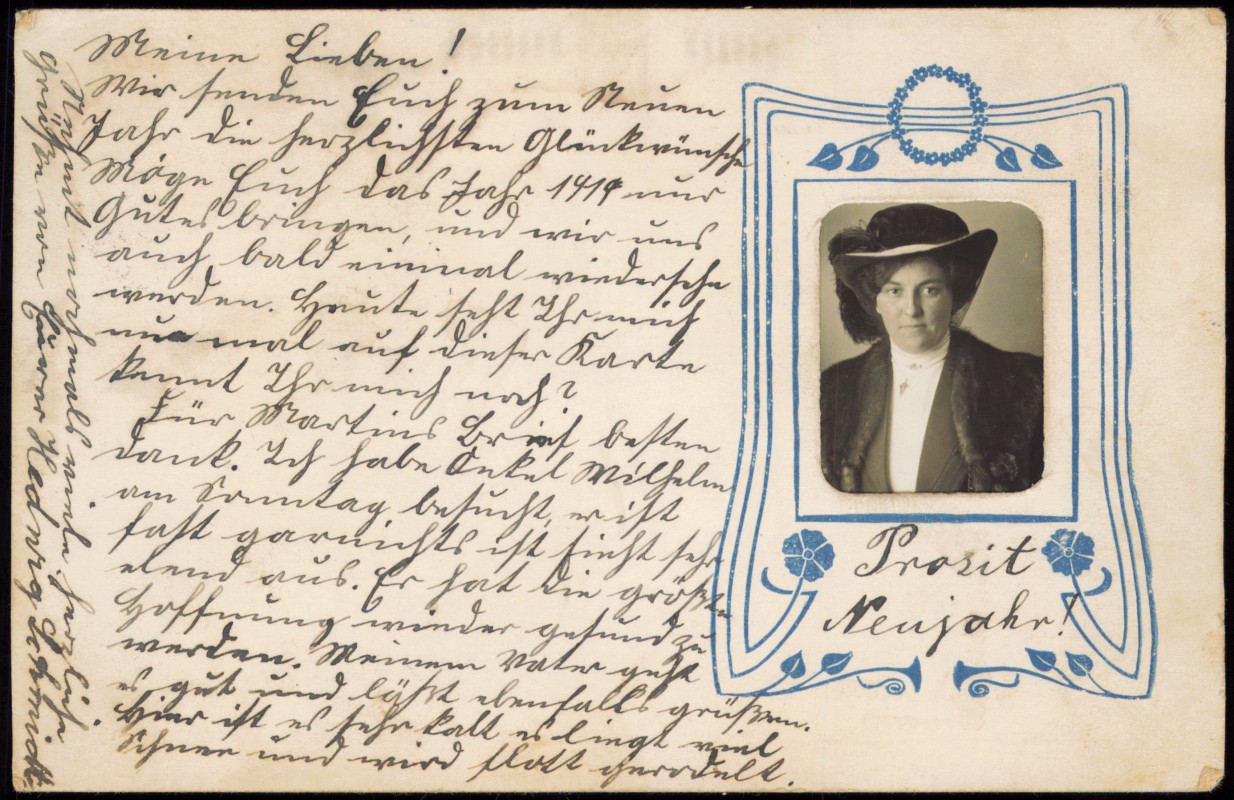 Meine Lieben!
Wir senden Euch zum Neuen
Jahr die herzlichsten Glückwünsche
Möge Euch das Jahr 1914 nur
Gutes bringen, und wir uns
auch bald einmal wiedersehn
werden. Heute seht Ihr mich
nur mal auf dieser Karte
kennt Ihr mich noch?
Für Martins Brief besten
Dank. Ich habe Onkel Wilhelm
am Sonntag besucht, er ist
fast garnichts ist sieht sehr
elend aus. Er hat die größte
Hoffnung wieder gesund zu
werden. Meinem Vater geht
es gut und läßt ebenfalls grüßen.
Hier ist es sehr kalt es liegt viel
Schnee und wird flott gerodelt.
nochmals viele herzliche
Grüße von Hedwig Schmidt.
Prosit
Neujahr!